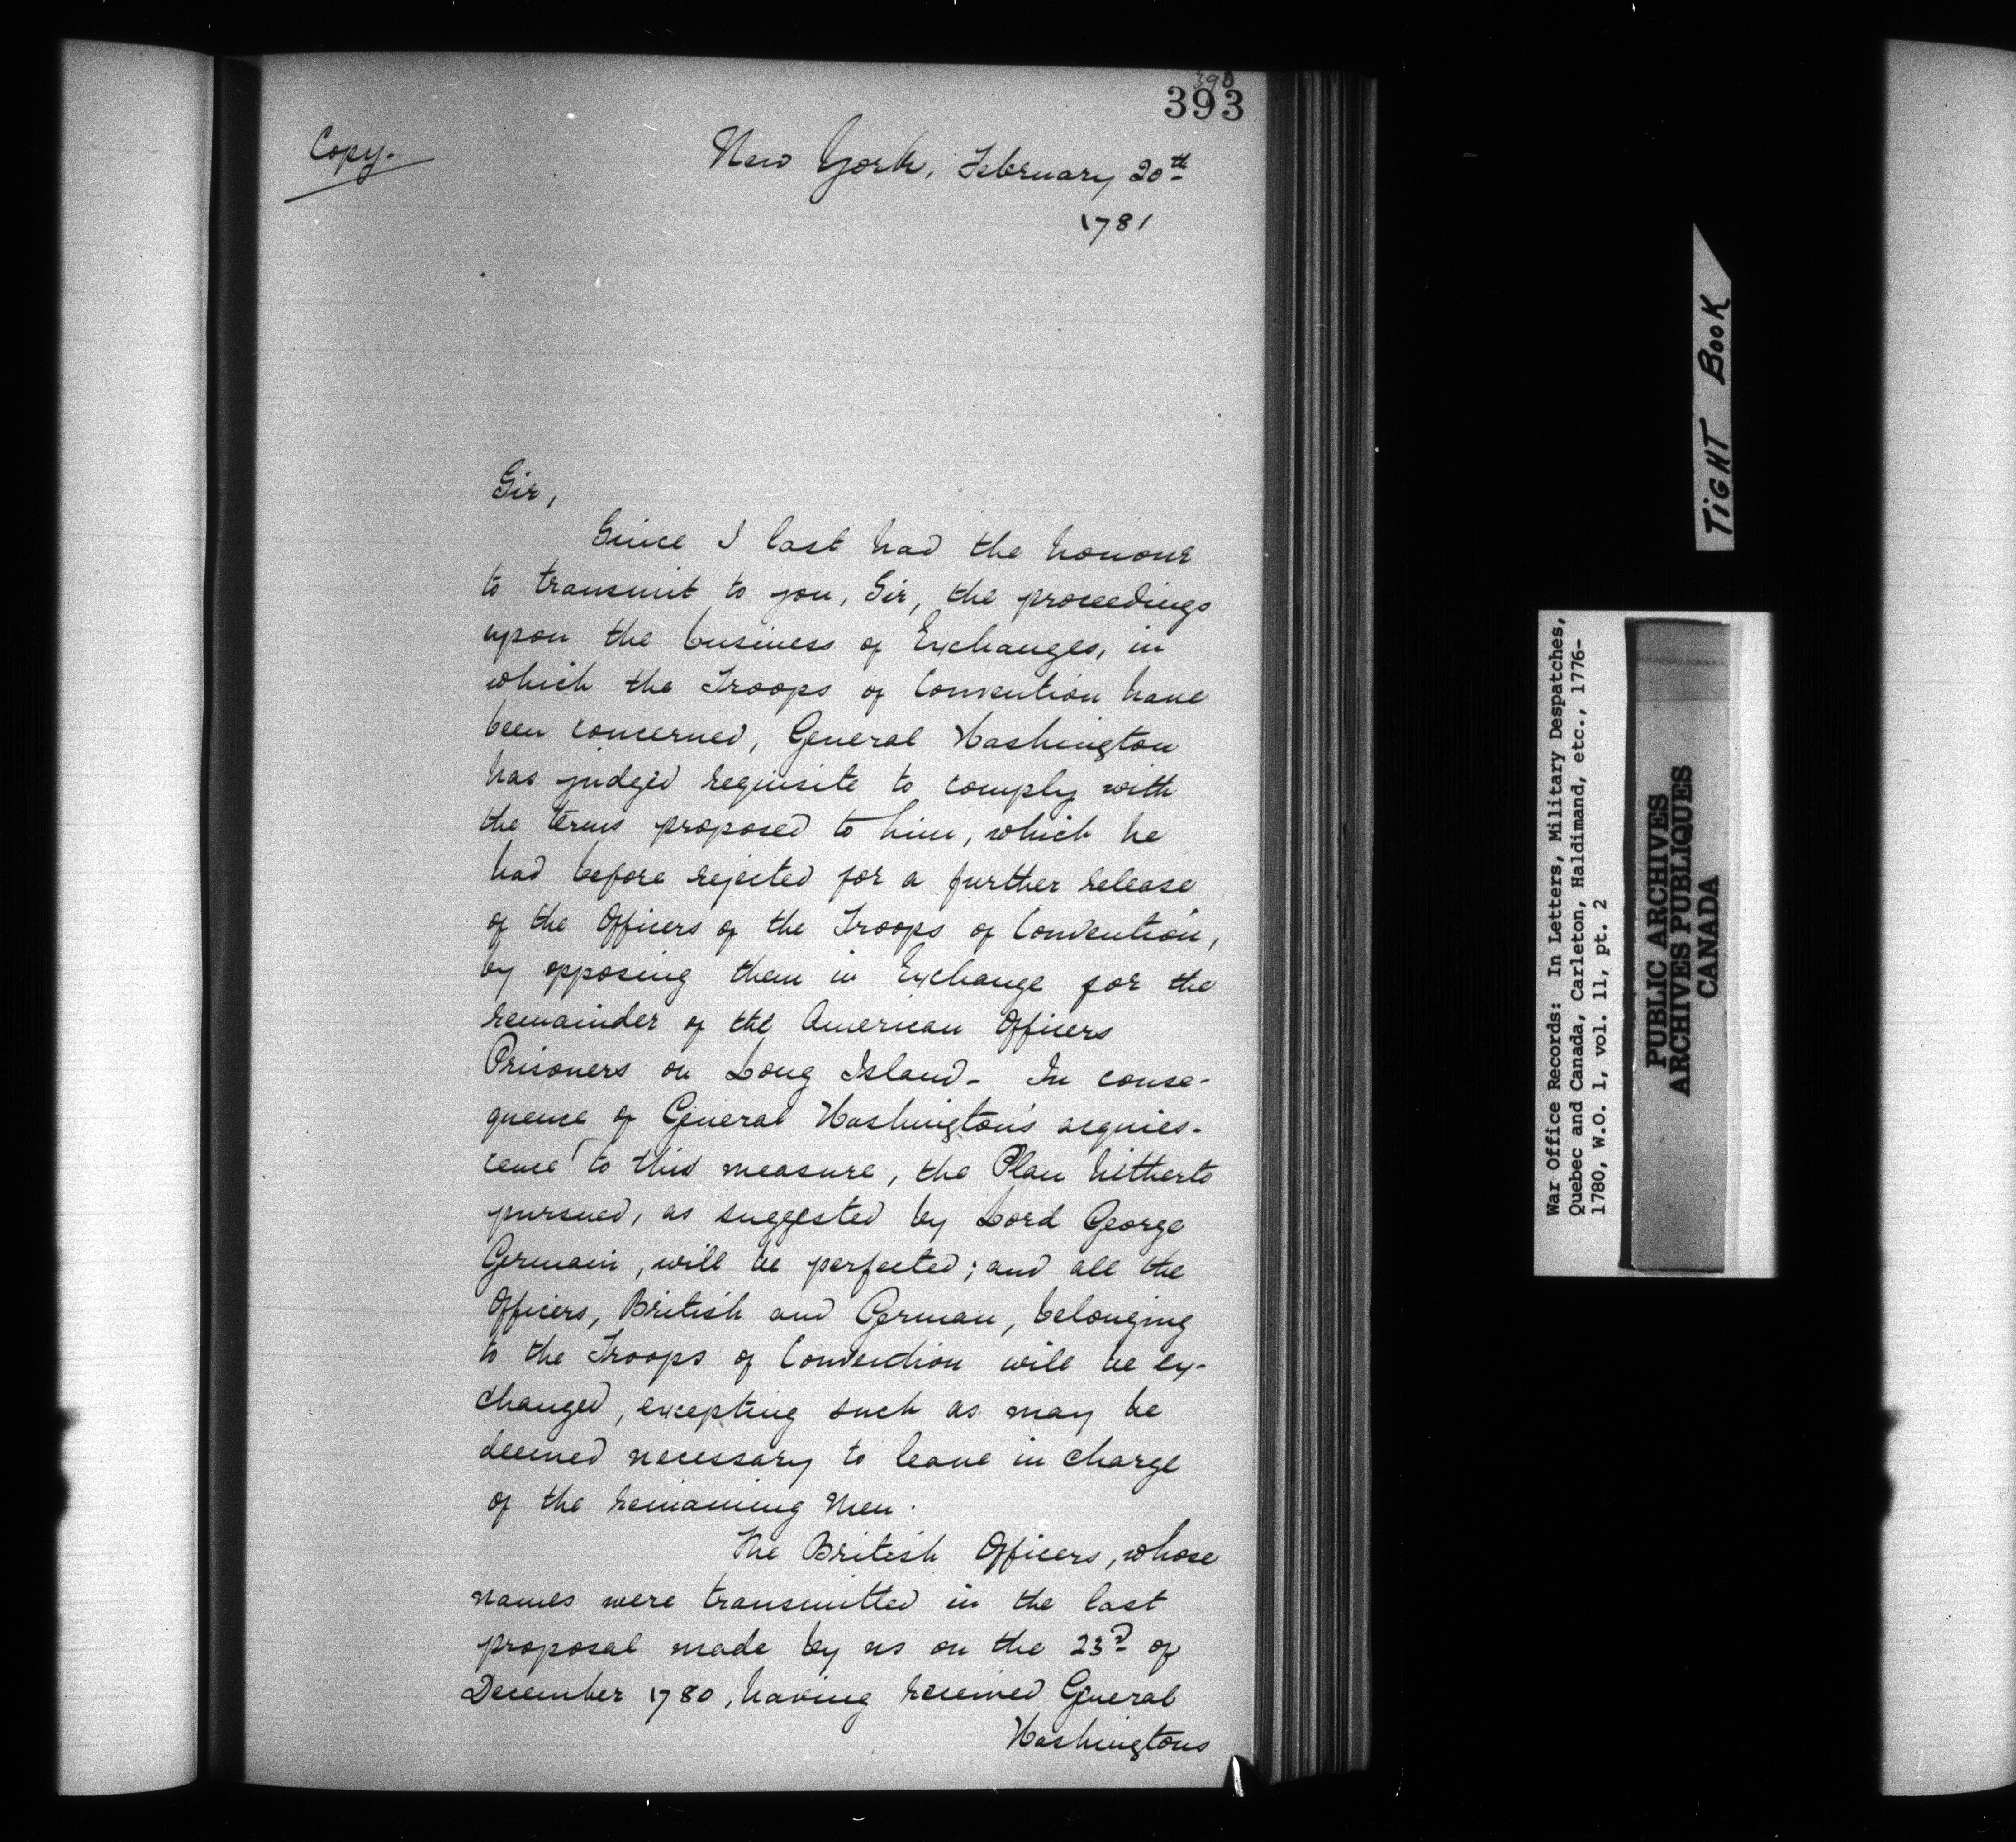 390
393
Copy.
New York, February 20th
1781
Sir,
Since I last had the honour
to transmit to you, Sir, the proceedings
upon the business of Exchanges, in
which the Troops of Convention have
been concerned, General Washington
has judged requisite to comply with
the terms proposed to him, which he
had before rejected for a further release
of the Officers of the Troops of Convention,
by opposing them in Exchange for the
remainder of the American Officers
Prisoners on Long Island - In conse-
quence of General Washington's acquies-
cence to this measure, the Plan hitherto
pursued, as suggested by Lord George
Germain, will be perfected; and all the
Officers, British and German, belonging
to the Troops of Convention will be ex-
changed, excepting such as may be
deemed necessary to leave in charge
of the remaining Men.
The British Officers, whose
names were transmitted in the last
proposal made by us on the 23d of
December 1780, having received General
Washingtons
TIGHT BOOK
War Office Records: In Letters, Military Despatches,
Quebec and Canada, Carleton, Haldimand, etc., 1776-
1780, W.O. 1, vol. 11, pt. 2
PUBLIC ARCHIVES
ARCHIVES PUBLIQUES
CANADA